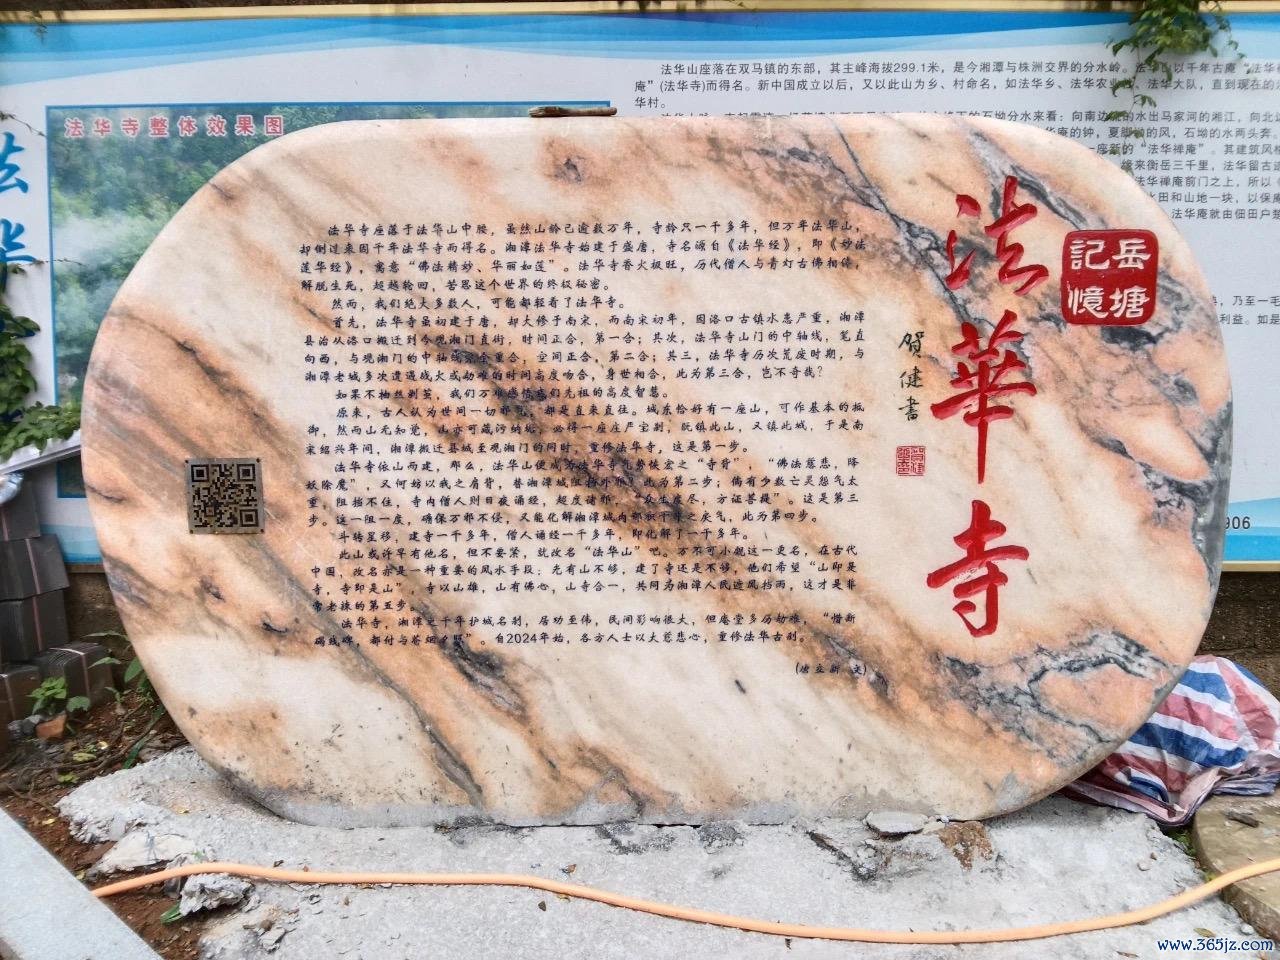 法华寺整体效果图
法华山座落在双马镇的东部，其主峰海拔299.1米，是今湘潭与株洲交界的分水岭。法华山以千年古庵“法华禅
庵”(法华寺)而得名。新中国成立以后，又以此山为乡、村命名，如法华乡、法华农业社、法华大队，直到现在的法
华村。
法華寺
岳塘
記憶
賀健書
法华寺座落于法华山中腰，虽然山龄已逾数万年，寺龄只一千多年，但万年法华山，
却倒过来因千年法华寺而得名。湘潭法华寺始建于盛唐，寺名源自《法华经》，即《妙法
莲华经》，寓意“佛法精妙、华丽如莲”。法华寺香火极旺，历代僧人与青灯古佛相伴，
解脱生死，超越轮回，苦思这个世界的终极秘密。
然而，我们绝大多数人，可能都轻看了法华寺。
首先，法华寺虽初建于唐，却大修于南宋，而南宋初年，因洛口古镇水患严重，湘潭
县治从洛口搬迁到今观湘门直街，时间正合，第一合；其次，法华寺山门的中轴线，笔直
向西，与观湘门的中轴线完全重合，空间正合，第二合；其三，法华寺历次荒废时期，与
湘潭老城多次遭遇战火或劫难的时间高度吻合，身世相合，此为第三合，岂不奇哉？
如果不抽丝剥茧，我们万难感悟我们先祖的高度智慧。
原来，古人认为世间一切邪气，都是直来直往。城东恰好有一座山，可作基本的抵
御，然而山无知觉，山亦可藏污纳垢，必得一座庄严宝刹，既镇此山，又镇此城，于是南
宋绍兴年间，湘潭搬迁县城至观湘门的同时，重修法华寺，这是第一步。
法华寺依山而建，那么，法华山便成为法华寺气势恢宏之“寺背”，“佛法慈悲，降
妖除魔”，又何妨以我之肩背，替湘潭城阻挡外邪？此为第二步；倘有少数亡灵怨气太
重，阻挡不住，寺内僧人则日夜诵经，超度诸邪，“众生度尽，方证菩提”。这是第三
步。这一阻一度，确保万邪不侵，又能化解湘潭城内部积千年之戾气，此为第四步。
斗转星移，建寺一千多年，僧人诵经一千多年，即化解了一千多年。
此山或许早有他名，但不要紧，就改名“法华山”吧。万不可小觑这一更名，在古代
中国，改名亦是一种重要的风水手段；先有山不够，建了寺还是不够，他们希望“山即是
寺，寺即是山”，寺以山雄，山有佛心，山寺合一，共同为湘潭人民遮风挡雨，这才是非
常老辣的第五步。
法华寺，湘潭之千年护城名刹，居功至伟，民间影响很大，但庵堂多历劫难，“惜断
碣残碑，都付与苍烟夕照”。自2024年始，各方人士以大慈悲心，重修法华古刹。
(唐立新 文)
www.365jz.com